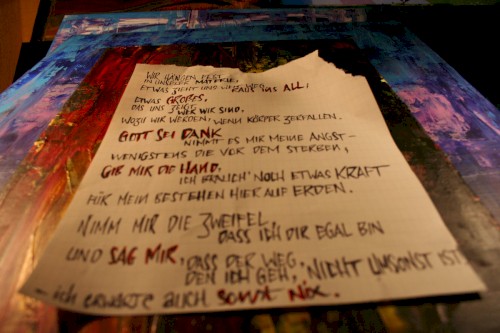 WIR HÄNGEN FEST
IN UNSERER MATERIE.
ETWAS ZIEHT UNS INS ALL,
ETWAS GROßES,
DAS UNS ZEIGT, WER WIR SIND,
WOZU WIR WERDEN, WENN KÖRPER ZERFALLEN.
GOTT SEI DANK
NIMMT ES MIR MEINE ANGST -
WENIGSTENS DIE VOR DEM STERBEN,
GIB MIR DIE HAND,
ICH BRAUCH' NOCH ETWAS KRAFT
FÜR MEIN BESTEHEN HIER AUF ERDEN.
NIMM MIR DIE ZWEIFEL,
DASS ICH DIR EGAL BIN
UND SAG MIR, DASS DER WEG,
DEN ICH GEH', NICHT UMSONST IST
- ICH ERWARTE AUCH SONST NIX.